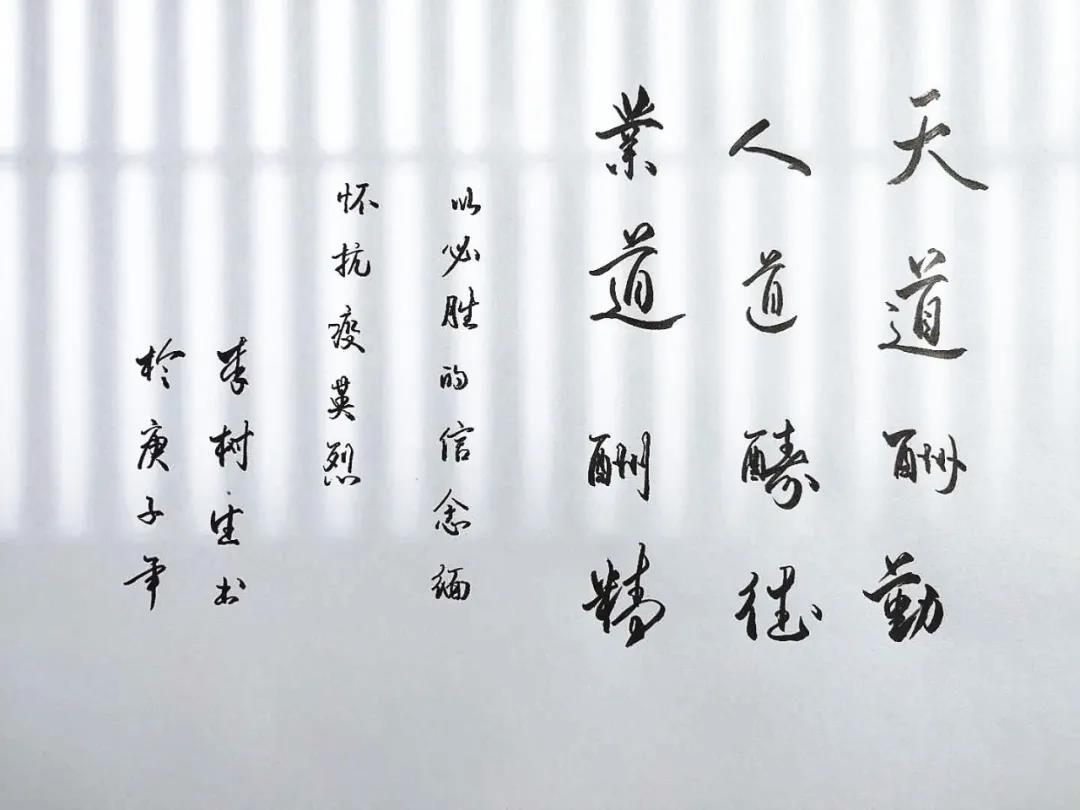 天道酬勤
人道醻德
業道酬精
以必胜的信念缅
怀抗疫英烈
李树书
於庚子年